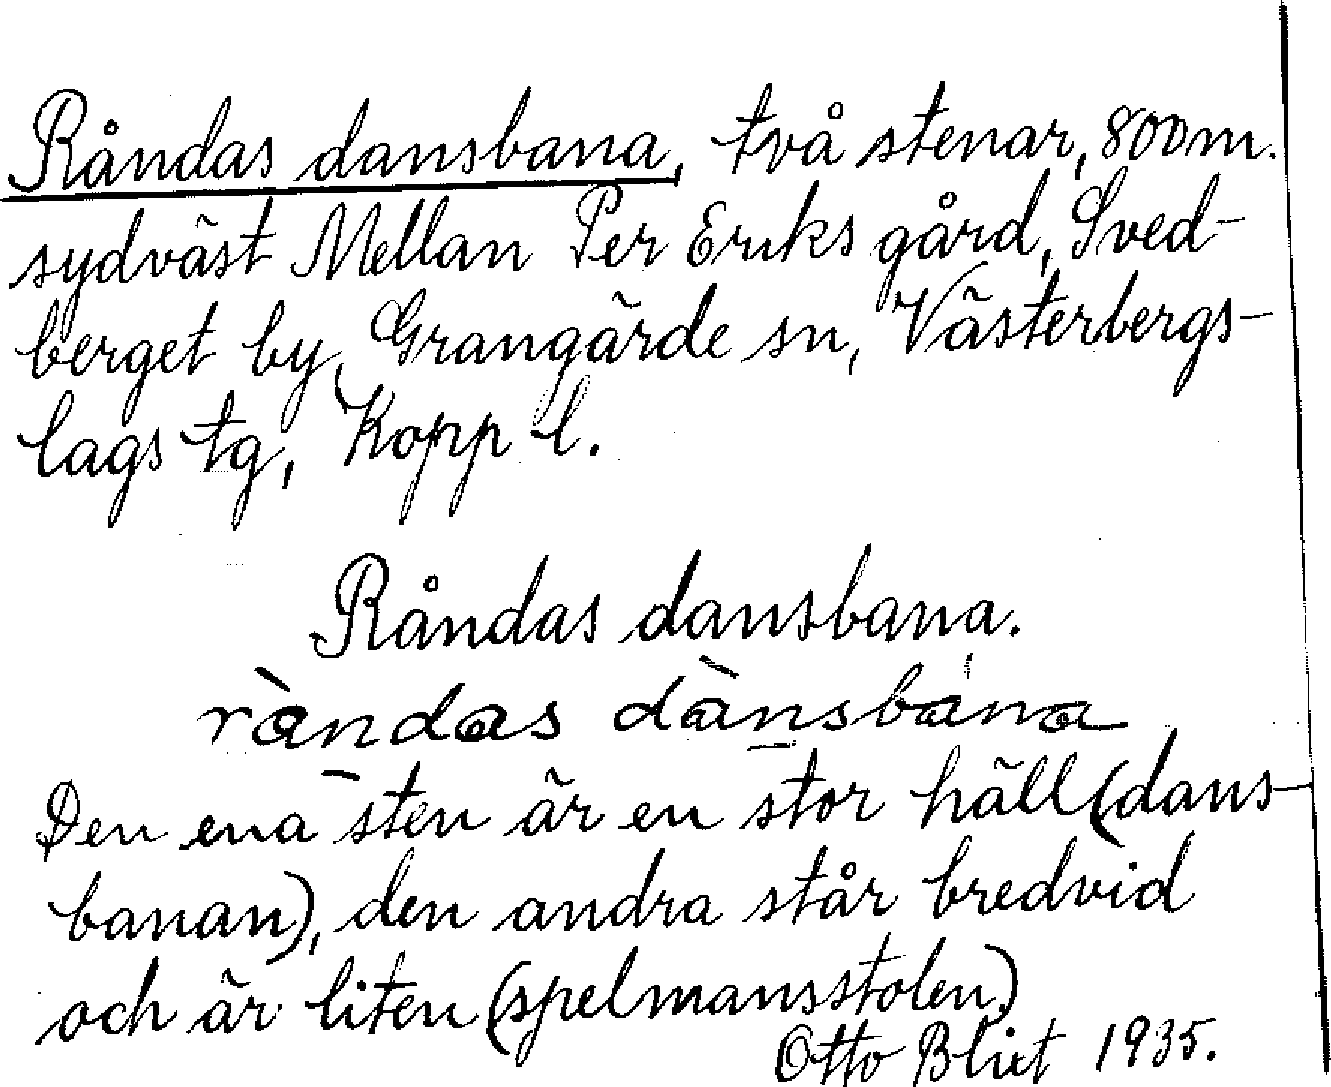 Råndas dansbana, två stenar, 800 m.
sydväst Mellan Per Eriks gård, Sved-
berget by, Grangärde sn, Västerbergs-
lags tg, Kopp l.
Råndas dansbana.
ràndas dànsbana
Den ena sten är en stor häll (dans-
banan), den andra står bredvid
och är liten (spelmansstolen)
Otto Blixt 1935.